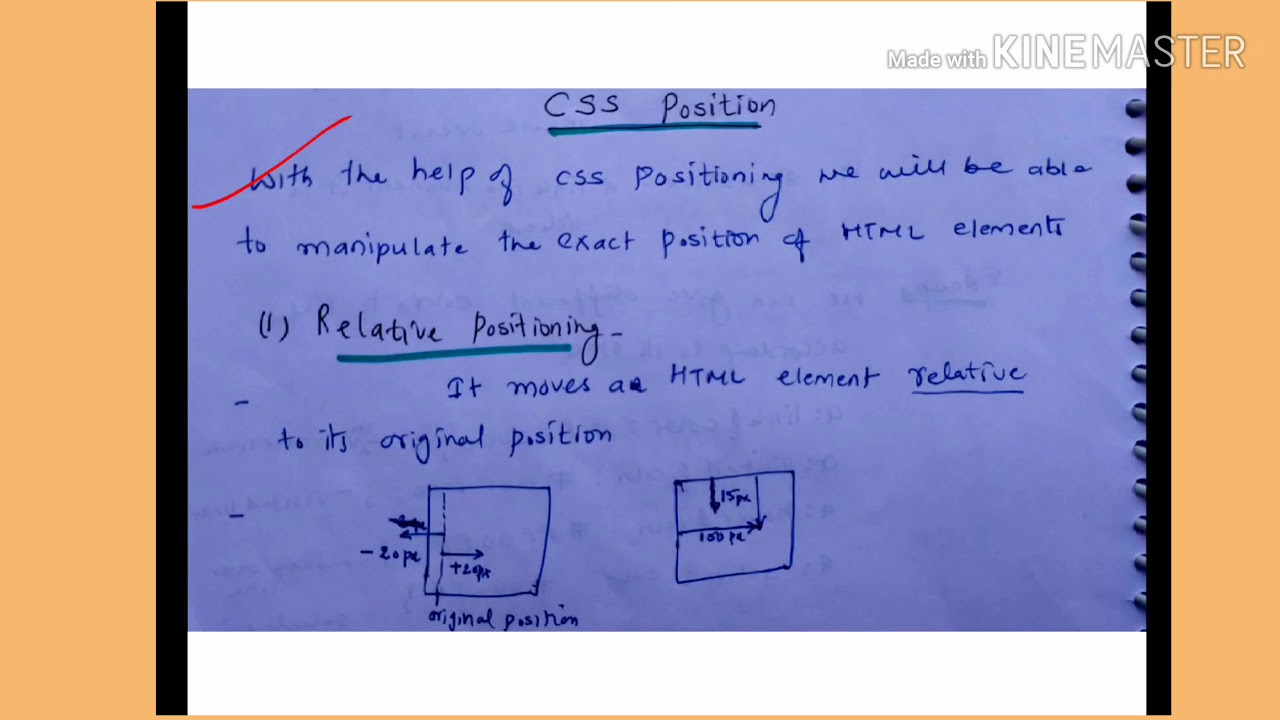 Made with KINEMASTER
CSS Position
With the help of css positioning we will be able
to manipulate the exact position of HTML elements
(1) Relative positioning -
It moves an HTML element relative
to its original position
-20px
+20px
original position
15px
100px